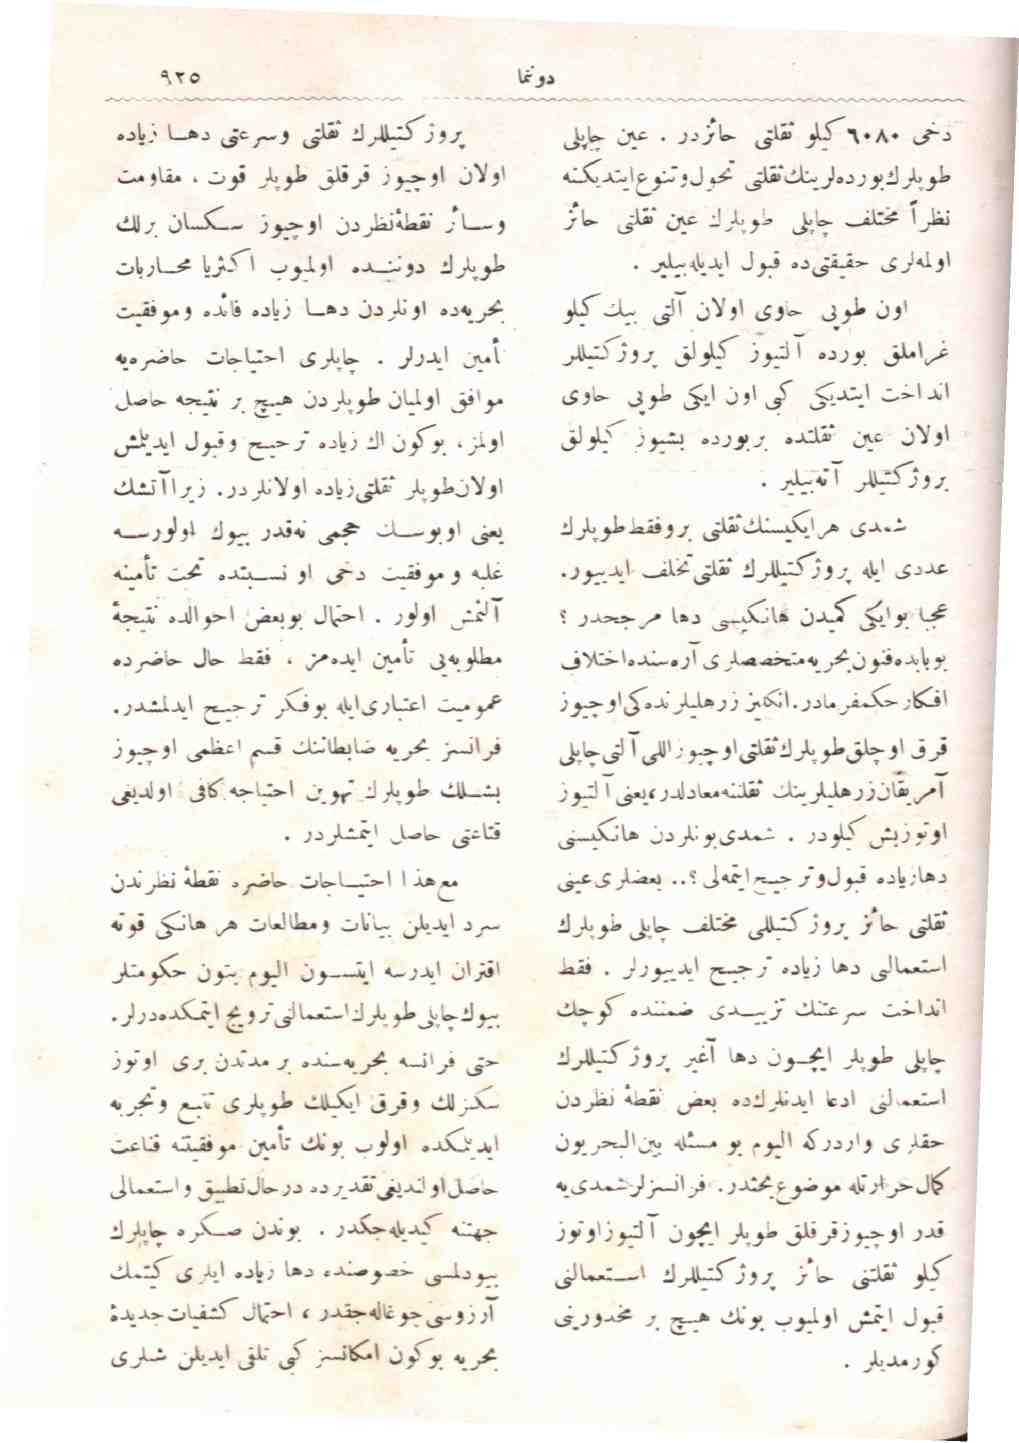 دوننما
٩٢٥
دخی ٦٠٨٠ كیلو ثقلتی حائزدر . عین چاپلی
طوپلرك‌بورده‌لرینك‌ثقلتی تحول‌وتنوع‌ایتدیكنه
نظراً مختلف چاپلی طوپلرك عین ثقلتی حائز
اولمه‌لری حقیقتی‌ده قبول ایدیله‌بیلیر .
اون طوپی حاوی اولان آلتی بیك كیلو
غراملق بورده آلتیوز كیلولق پروژكتیللر
انداخت ایتدیكی كبی اون ایكی طوپی حاوی
اولان عین ثقلتده بربورده بشیوز كیلولق
پروژكتیللر آته‌بیلیر .
شمدی هرایكیسنك‌ثقلتی بروفقط طوپلرك
عددی ایله پروژكتیللرك ثقلتی تخلف ایدییور.
عجبا بوایكی كمیدن هانكیسی دها مرجحدر ؟
بوبابده‌فنون‌بحریه‌متخصصلری آره‌سنده‌اختلاف
افكار حكمفرمادر. انكلیز زرهلیلرنده‌كی‌اوچیوز
قرق اوچلق‌طوپلرك‌ثقلتی‌اوچیوزاللی آلتی‌چاپلی
آمریقان‌زرهلیلرینك ثقلتنه‌معادلدر،یعنی آلتیوز
اوتوزبش كیلودر . شمدی‌بونلردن هانكیسنی
دهازیاده قبول‌وترجیح‌ایتمه‌لی ؟.. بعضلری‌عینی
ثقلتی حائز پروژكتیللی مختلف چاپلی طوپلرك
استعمالنی دها زیاده ترجیح ایدییورلر . فقط
انداخت سرعتنك تزییـدی ضمننده كوچك
چاپلی طوپلر ایچـون دها آغیر پروژكتیللرك
استعمالنی ادعا ایدنلرك‌ده بعض نقطهٔ نظردن
حقلری واردركه الیوم بو مسئله بین‌البحریون
كمال‌حرارتله موضوع‌بحثدر. فرانسزلرشمدی‌یه
قدر اوچیوزقرقلق طوپلر ایچون آلتیوزاوتوز
كیلو ثقلتنی حائز پروژكتیللرك اسـتعمالنی
قبول ایتمش اولمیوب بونك هیچ بر محذورینی
كورمدیلر .
پروژكتیللرك ثقلتی وسرعتی دهـا زیاده
اولان اوچیوز قرقلق طوپلر قوت ، مقاومت
وسـائر نقطهٔ‌نظردن اوچیوز سـكسان برلك
طوپلرك دوننـده اولمیوب اكثریا محـاربات
بحریه‌ده اونلردن دهـا زیاده فائده وموفقیت
تأمین ایدرلر . چاپلری احتیاجات حاضره‌یه
موافق اولمیان طوپلردن هیـچ بر نتیجه حاصل
اولمز، بوكون اك زیاده ترجیـح وقبول ایدیلمش
اولان‌طوپلر ثقلتی‌زیاده اولانلردر. زیراآتشك
یعنی اوبوسـك حجمی نه‌قدر بیوك اولورسـه
غلبه و موفقیت دخی او نسـبتده تحت تأمینه
آلنمش اولور . احتمال بوبعض احوالده نتیجهٔ
مطلوبه‌یی تأمین ایده‌مز ، فقط حال حاضرده
عمومیت اعتباری‌ایله بوفكر ترجیـح ایدلمشدر.
فرانسز بحریه ضابطاننك قسم اعظمی اوچیوز
بشـلك طوپلرك تهوین احتیاجه كافی اولدیغی
قناعتی حاصل ایتمشلردر .
مع‌هذا احتیـاجات حاضره نقطهٔ نظرندن
سرد ایدیلن بیانات ومطالعات هر هانكی قوته
اقتران ایدرسه ایتسـون الیوم بتون حكومتلر
بیوك‌چاپلی‌طوپلرك‌استعمالنی‌ترویج ایتمكده‌درلر.
حتی فرانسه بحریه‌سنده بر مدتدن بری اوتوز
سكزلك وقرق ایكیلك طوپلری تتبـع وتجربه
ایدیلمكده اولوب بونك تأمین موفقیتنه قناعت
حاصل‌اولندیغی‌تقدیرده درحال‌تطبیق واستعمالی
جهتنه كیدیله‌جكدر . بوندن صـكره چاپلرك
بیودلمسی خصوصنده دها زیاده ایلری كیتمك
آرزوسی‌چوغاله‌جقدر ، احتمال كشفیات‌جدیدهٔ
بحریه بوكون امكانسز كبی تلقی ایدیلن شیلری